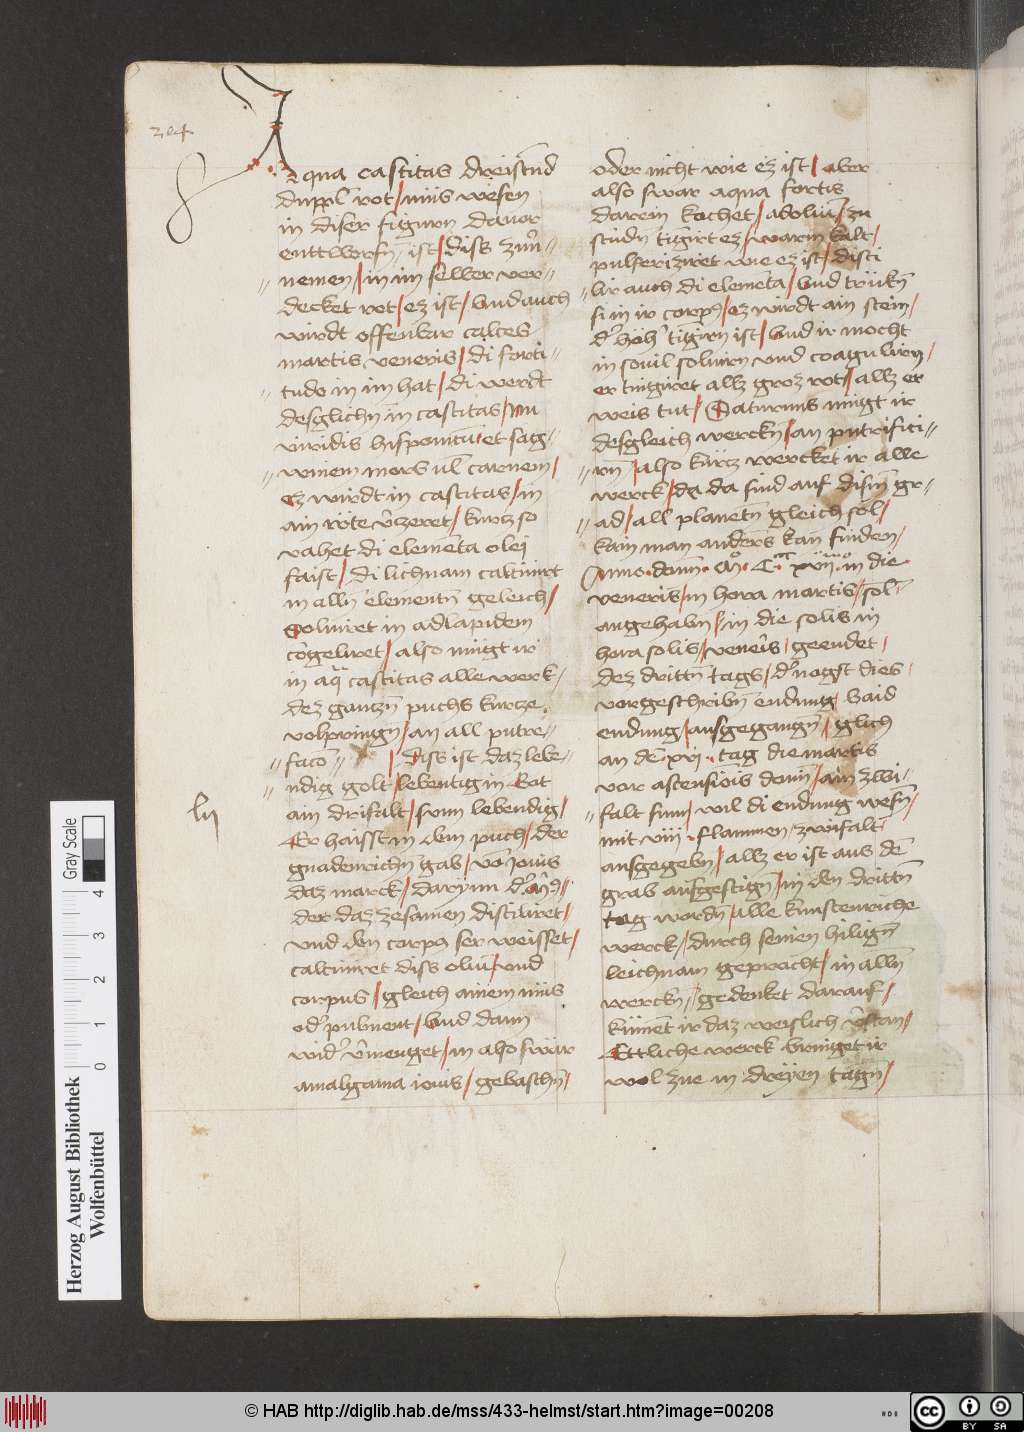 204
Aqua castitas dreistund
duppl rot / mus wesen
in diser figurn davor
enttworfn ist / Diss zun
nemen / in im selber ver
decket rot / ez ist / und auch
wirdt offenbar calces
martis veneris / di forti
tudo in im hat / di werdt
desglichn in castitas /
viridis hisponicu et sag
vinem mors ul carnem /
ez wirdt in castitas / in
ain röte / kurz so
vahet di elementa olei
faist / di lichnam calcinirt
in alln elementn geleich /
Solviret in ad lapidem
congeliret / also mügt ir
in aq castitas alle werk /
dez gantzn puchs kurtze
volpringn / an all putre
faco / Diss ist daz lebe
ndig golt / lebentig in Rot
ain drifalt / sunn lebendig /
Er haisst in dem puch / der
gnadenrichn gab / vo jouis
daz marck / darynn
der daz zesamen distiliret /
und den corpus ser weisset /
calciniret diss oliu / und
corpus / gleich ainem mus
od pulment / und dann
wid vmenget / in also swar
amalgama iouis / gebaschn /
ln
oder nicht wie ez ist / aber
also swar aqua fortis
darein kochet / absolui / zu
stundn tingirt ez / warm kalt /
pulferiziret wie ez ist / disti
lir auch di elementa / und trükn
si in ir corpus / ez wirdt ain stein /
d höh tigirn ist / und ir mocht
in souil soluirn und coagulirn /
er tingiret allz groz rot / allz er
weis tut / Saturnus mügt ir
desgleich werckn / an putrifici
rn / also kürz wercket ir alle
werck / da da sind auf dism gr
ad / all planetn gleich sol /
kain man anders kan finden /
Anno domi M C xvii in die
veneris / in hora martis / sol
angehabn / in die solis in
hora solis / veneris / geendet
dez drittn tags / d nagst dies
vorgeschribn endung / baid
endung / ausgegangn / glich
an de xvi tag die martis
vor ascensiois domi / ain zwi
falt sunn / wil di endung wesn /
mit viiii flammen / zwifalt
ausgegebn / allz er ist aus de
grab aufgestign / in den drittn
tag wordn / alle kunstenriche
werck / durch seinen hilign
leichnam gepracht / in alln
werckn / gedenket darauf /
kumet ir daz weislich vstan /
Ettliche werck bringet ir
wol zue in dreyen tagn /
Herzog August Bibliothek
Wolfenbüttel
Gray Scale
0 1 2 3 4
© HAB http://diglib.hab.de/mss/433-helmst/start.htm?image=00208
cc
BY SA